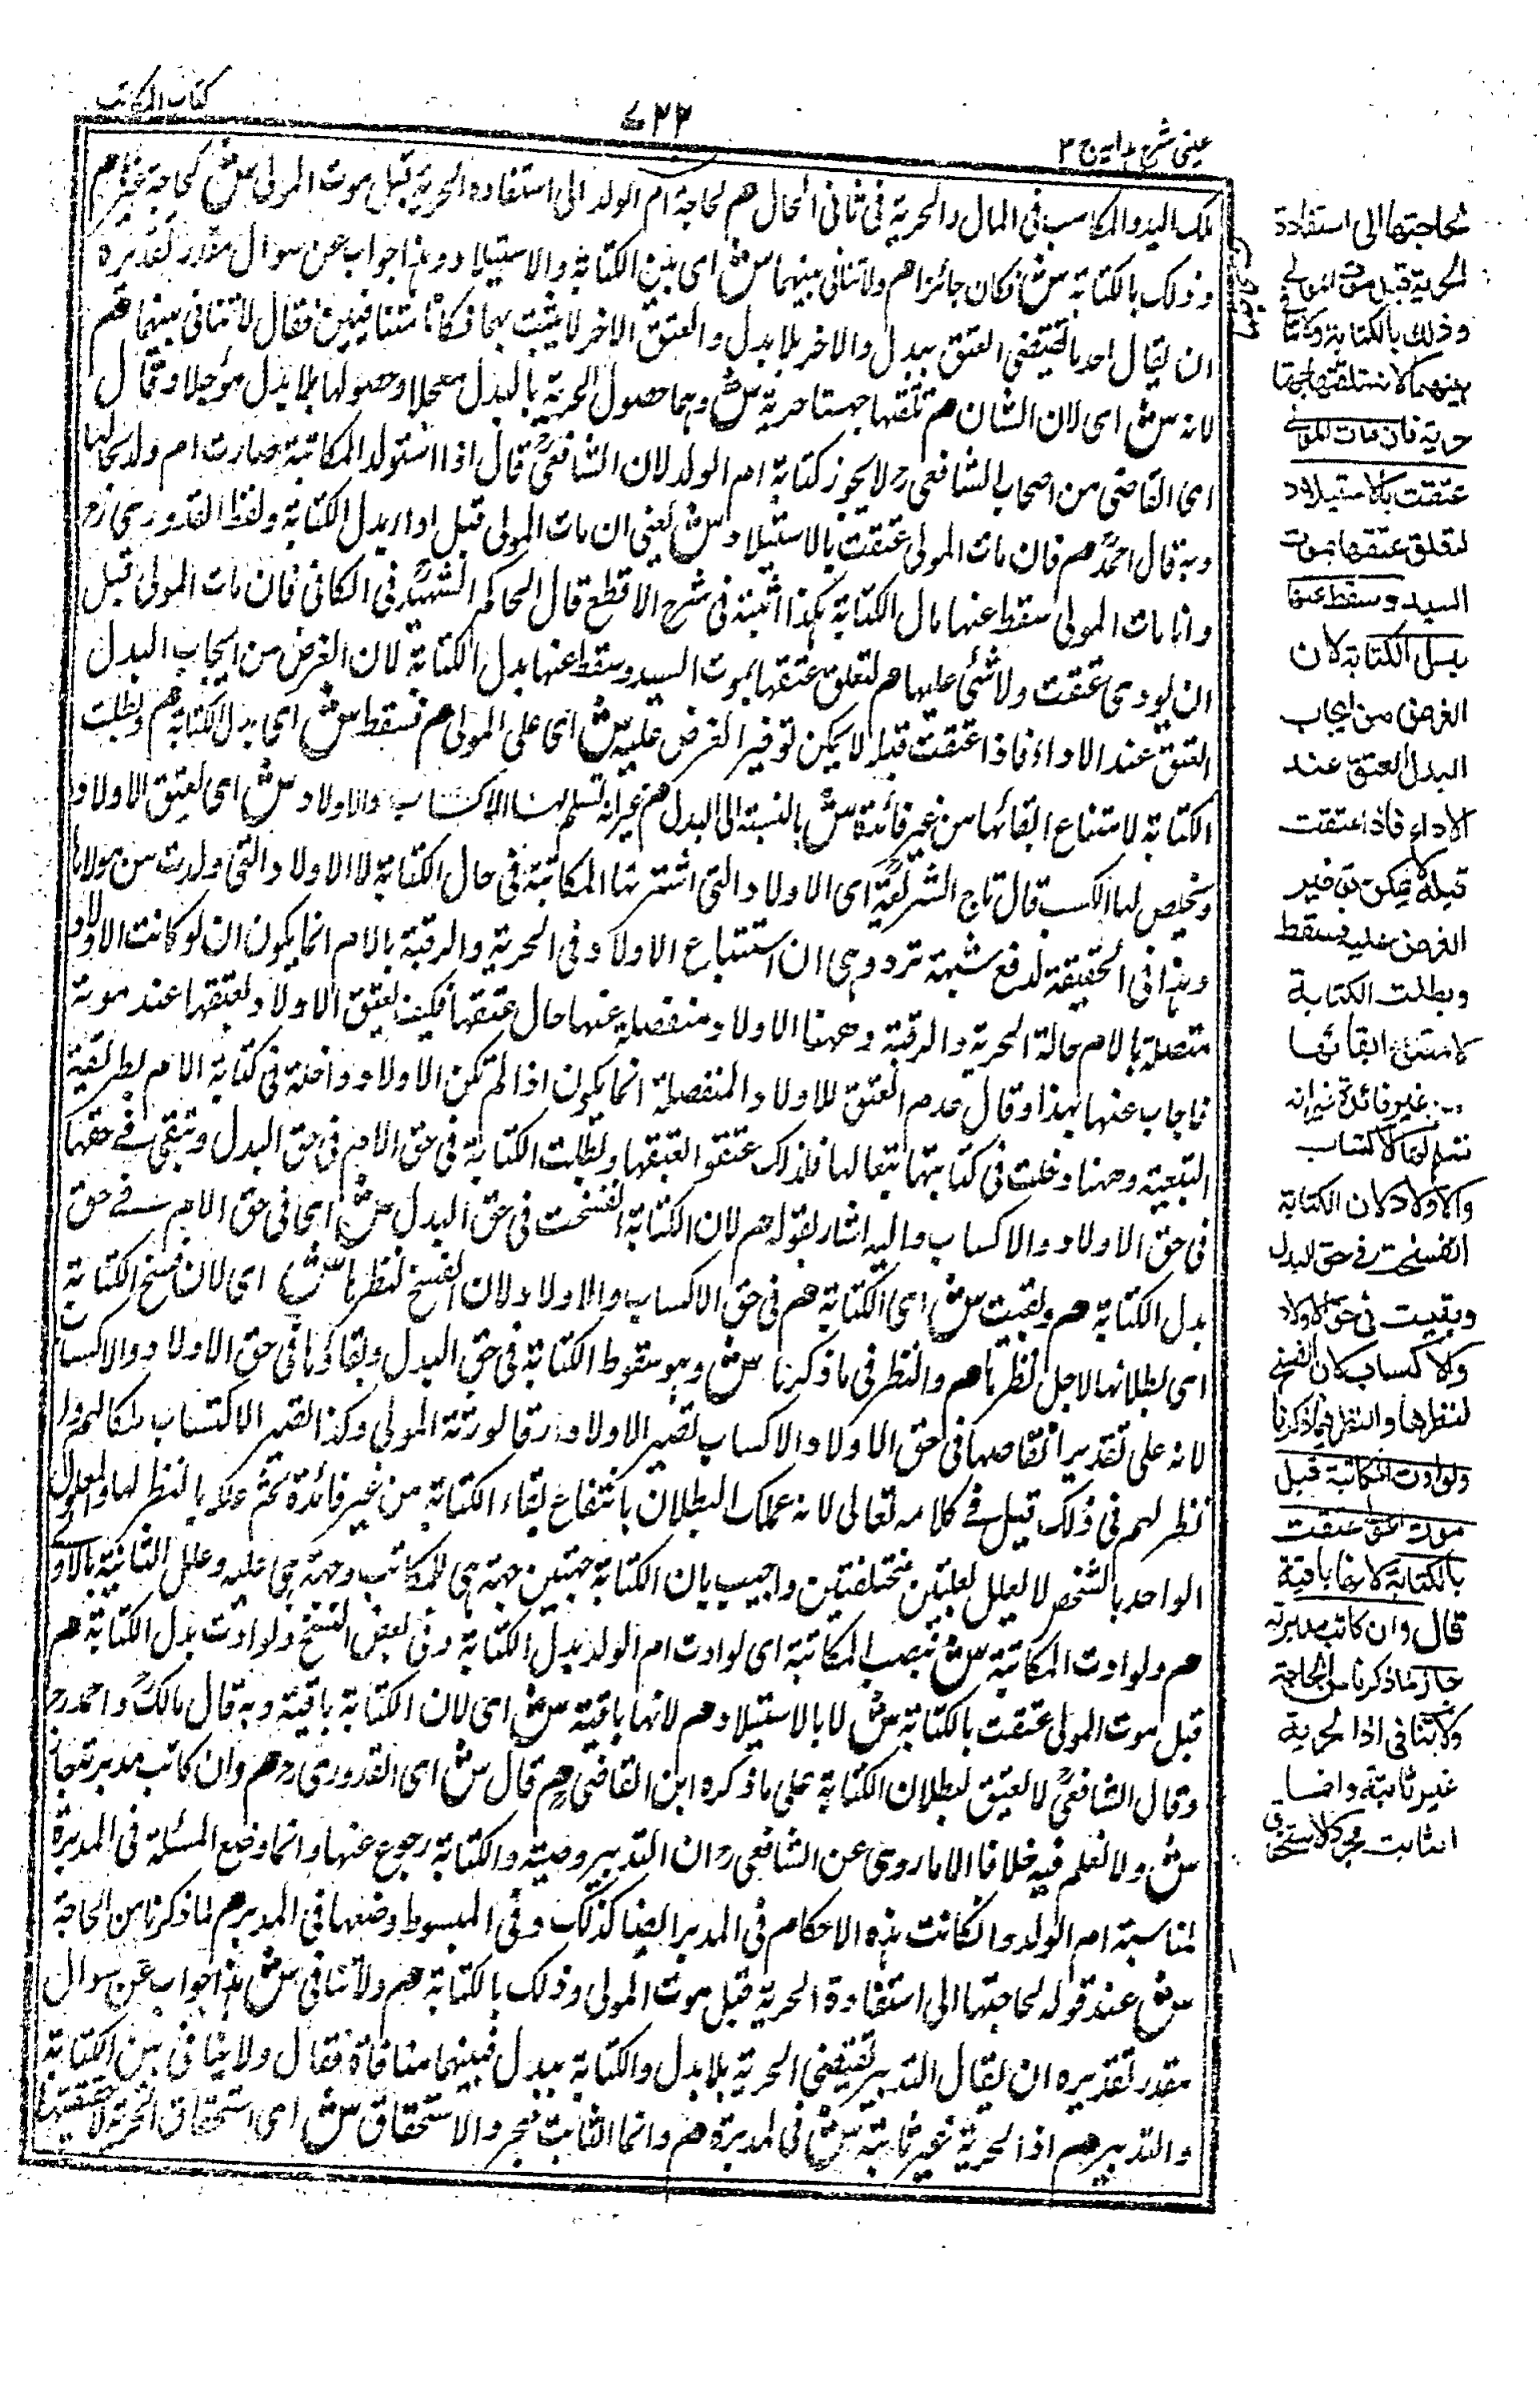 عینی شرح ہدایہ ج ۳
۷۲۲
کتاب المکاتب
ملك اليد والمكاسب فى المال والحرية فى ثانى الحال هم لحاجة ام الولد الى استفادة الحرية قبل موت المولى ش لحاجة غيرها هم
وذلك بالكتابة ش فكان جائزا هم ولا تنافى بينهما ش اى بين الكتابة والاستيلاد وهذا جواب عن سوال مقدر تقديره
ان يقال احدهما يقتضى العتق ببدل والاخر بلا بدل والعتق الاخر لا يثبت بهما فكانا متنافيين فقال لا تنافى بينهما هم
لانه ش اى لان الشان هم تلقتها جهتا حرية ش وهما حصول الحرية بالبدل معجلا وحصولها بلا بدل مؤجلا وقال
اى القاضى من اصحاب الشافعى رح لا يجوز كتابة ام الولد لان الشافعى رح قال اذا استولد المكاتبة صارت ام ولد بحالها
وبه قال احمد رح هم فان مات المولى عتقت بالاستيلاد ش يعنى ان مات المولى قبل اداء بدل الكتابة ولفظ القدورى رح
وان مات المولى سقط عنها مال الكتابة هكذا اثبته فى شرح الاقطع قال الحاكم الشهيد رح فى الكافى فان مات المولى قبل
ان يودى عتقت ولا شئ عليها هم لتعلق عتقها بموت السيد وسقط عنها بدل الكتابة لان الغرض من ايجاب البدل
العتق عند الاداء فاذا عتقت قبله لا يمكن توفير الغرض عليه ش اى على المولى هم فسقط ش اى بدل الكتابة هم وبطلت
الكتابة لامتناع ابقائها من غير فائدة ش بالنسبة الى البدل هم غير انه تسلم لها الاكساب والاولاد ش اى لعتق الاولاد
ويخلص لها الكسب قال تاج الشريعة رح اى الاولاد التى اشترتها المكاتبة فى حال الكتابة لا الاولاد التى ولدت من مولاها
وهذا فى الحقيقة لدفع شبهة ترد وهى ان استتباع الاولاد فى الحرية والرقبة بالام انما يكون ان لو كانت الاولاد
متصلة بالام حالة الحرية والرقبة وههنا الاولاد منفصلة عنها حال عتقها فكيف يعتق الاولاد بعتقها عند موته
فاجاب عنها بهذا وقال عدم العتق للاولاد المنفصلة انما يكون اذا لم تكن الاولاد داخلة فى كتابة الام بطريقة
التبعية وههنا دخلت فى كتابتها تبعا لها فلذلك عتقوا بعتقها وبطلت الكتابة فى حق الام فى حق البدل وتبقى فى حقها
فى حق الاولاد والاكساب واليه اشار بقوله هم لان الكتابة انفسخت فى حق البدل ش اى فى حق الام فى حق
بدل الكتابة هم وبقيت ش اى الكتابة هم فى حق الاكساب والاولاد لان الفسخ لنظرها ش اى لان فسخ الكتابة
اى بطلانها لاجل نظرها هم والنظر فى ما ذكرنا ش وهو سقوط الكتابة فى حق البدل وبقاؤها فى حق الاولاد والاكساب
لانه على تقدير انتقاصها فى حق الاولاد والاكساب تصير الاولاد ارقا لورثة المولى وكذا تصير الاكتساب ملكا لهم ولا
نظر لهم فى ذلك قيل فى كلامه تعالى لانه علل البطلان بانتفاع بقاء الكتابة من غير فائدة ثم علله بالنظر لها والمعلول
الواحد بالشخص لا يعلل بعلتين مختلفتين واجيب بان الكتابة جهتين جهة هى للمكاتب وجهة هى عليه وعلل الثانية بالاولى
هم ولو ادت المكاتبة ش بنصب المكاتبة اى لو ادت ام الولد بدل الكتابة وفى بعض النسخ ولو ادت بدل الكتابة هم
قبل موت المولى عتقت بالكتابة ش لا بالاستيلاد هم لانها باقية ش اى لان الكتابة باقية وبه قال مالك رح واحمد رح
وقال الشافعى رح لا يعتق لبطلان الكتابة على ما ذكره ابن القاضى هم قال ش اى القدورى رح هم وان كاتب مدبرته جاز
ش ولا نعلم فيه خلافا الا ما روى عن الشافعى رح ان التدبير وصية والكتابة رجوع عنها وانما وضع المسئلة فى المدبرة
لمناسبة ام الولد وان كانت هذه الاحكام فى المدبر ايضا كذلك وفى المبسوط وضعها فى المدبر هم لما ذكرنا من الحاجة
ش عند قوله لحاجتها الى استفادة الحرية قبل موت المولى وذلك بالكتابة هم ولا تنافى ش هذا جواب عن سوال
مقدر تقديره ان يقال التدبير يقتضى الحرية بلا بدل والكتابة ببدل فبينهما منافاة فقال ولا ينافى بين الكتابة
والتدبير هم اذ الحرية غير ثابتة ش فى المدبرة هم وانما الثابت مجرد الاستحقاق ش اى استحقاق الحرية لا حقيقتها
لحاجتها الى استفادة
الحرية قبل موت المولى
وذلك بالكتابة ولا تنافى
بينهما لانه تلقتها جهتا
حرية فان مات المولى
عتقت بالاستيلاد
لتعلق عتقها بموت
السيد وسقط عنها
بدل الكتابة لان
الغرض من ايجاب
البدل العتق عند
الاداء فاذا عتقت
قبله لا يمكن توفير
الغرض عليه فسقط
وبطلت الكتابة
لامتناع ابقائها
من غير فائدة غير انه
تسلم لها الاكساب
والاولاد لان الكتابة
انفسخت فى حق البدل
وبقيت فى حق الاولاد
والاكساب لان الفسخ
لنظرها والنظر فيما ذكرنا
ولو ادت المكاتبة قبل
موت المولى عتقت
بالكتابة لانها باقية
قال وان كاتب مدبرته
جاز لما ذكرنا من الحاجة
ولا تنافى اذ الحرية
غير ثابتة وانما
الثابت مجرد الاستحقاق